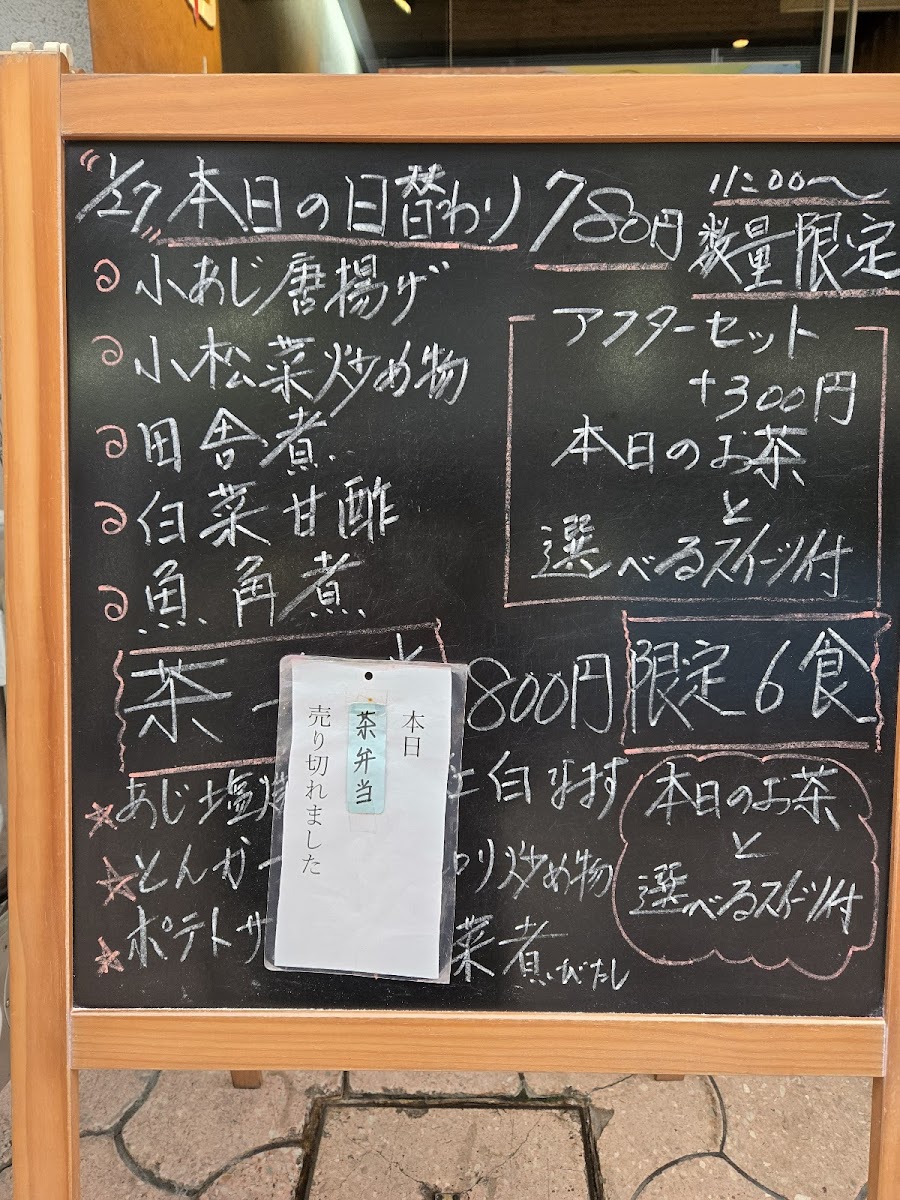 1/27 本日の日替わり 780円
11:00〜
数量限定
小あじ唐揚げ
小松菜炒め物
田舎煮
白菜甘酢
魚角煮
アフターセット
+300円
本日のお茶
と
選べるスイーツ付
茶
800円
限定6食
あじ塩
白なます
とんか
り炒め物
ポテトサ
菜煮びたし
本日
茶弁当
売り切れました
本日のお茶
と
選べるスイーツ付